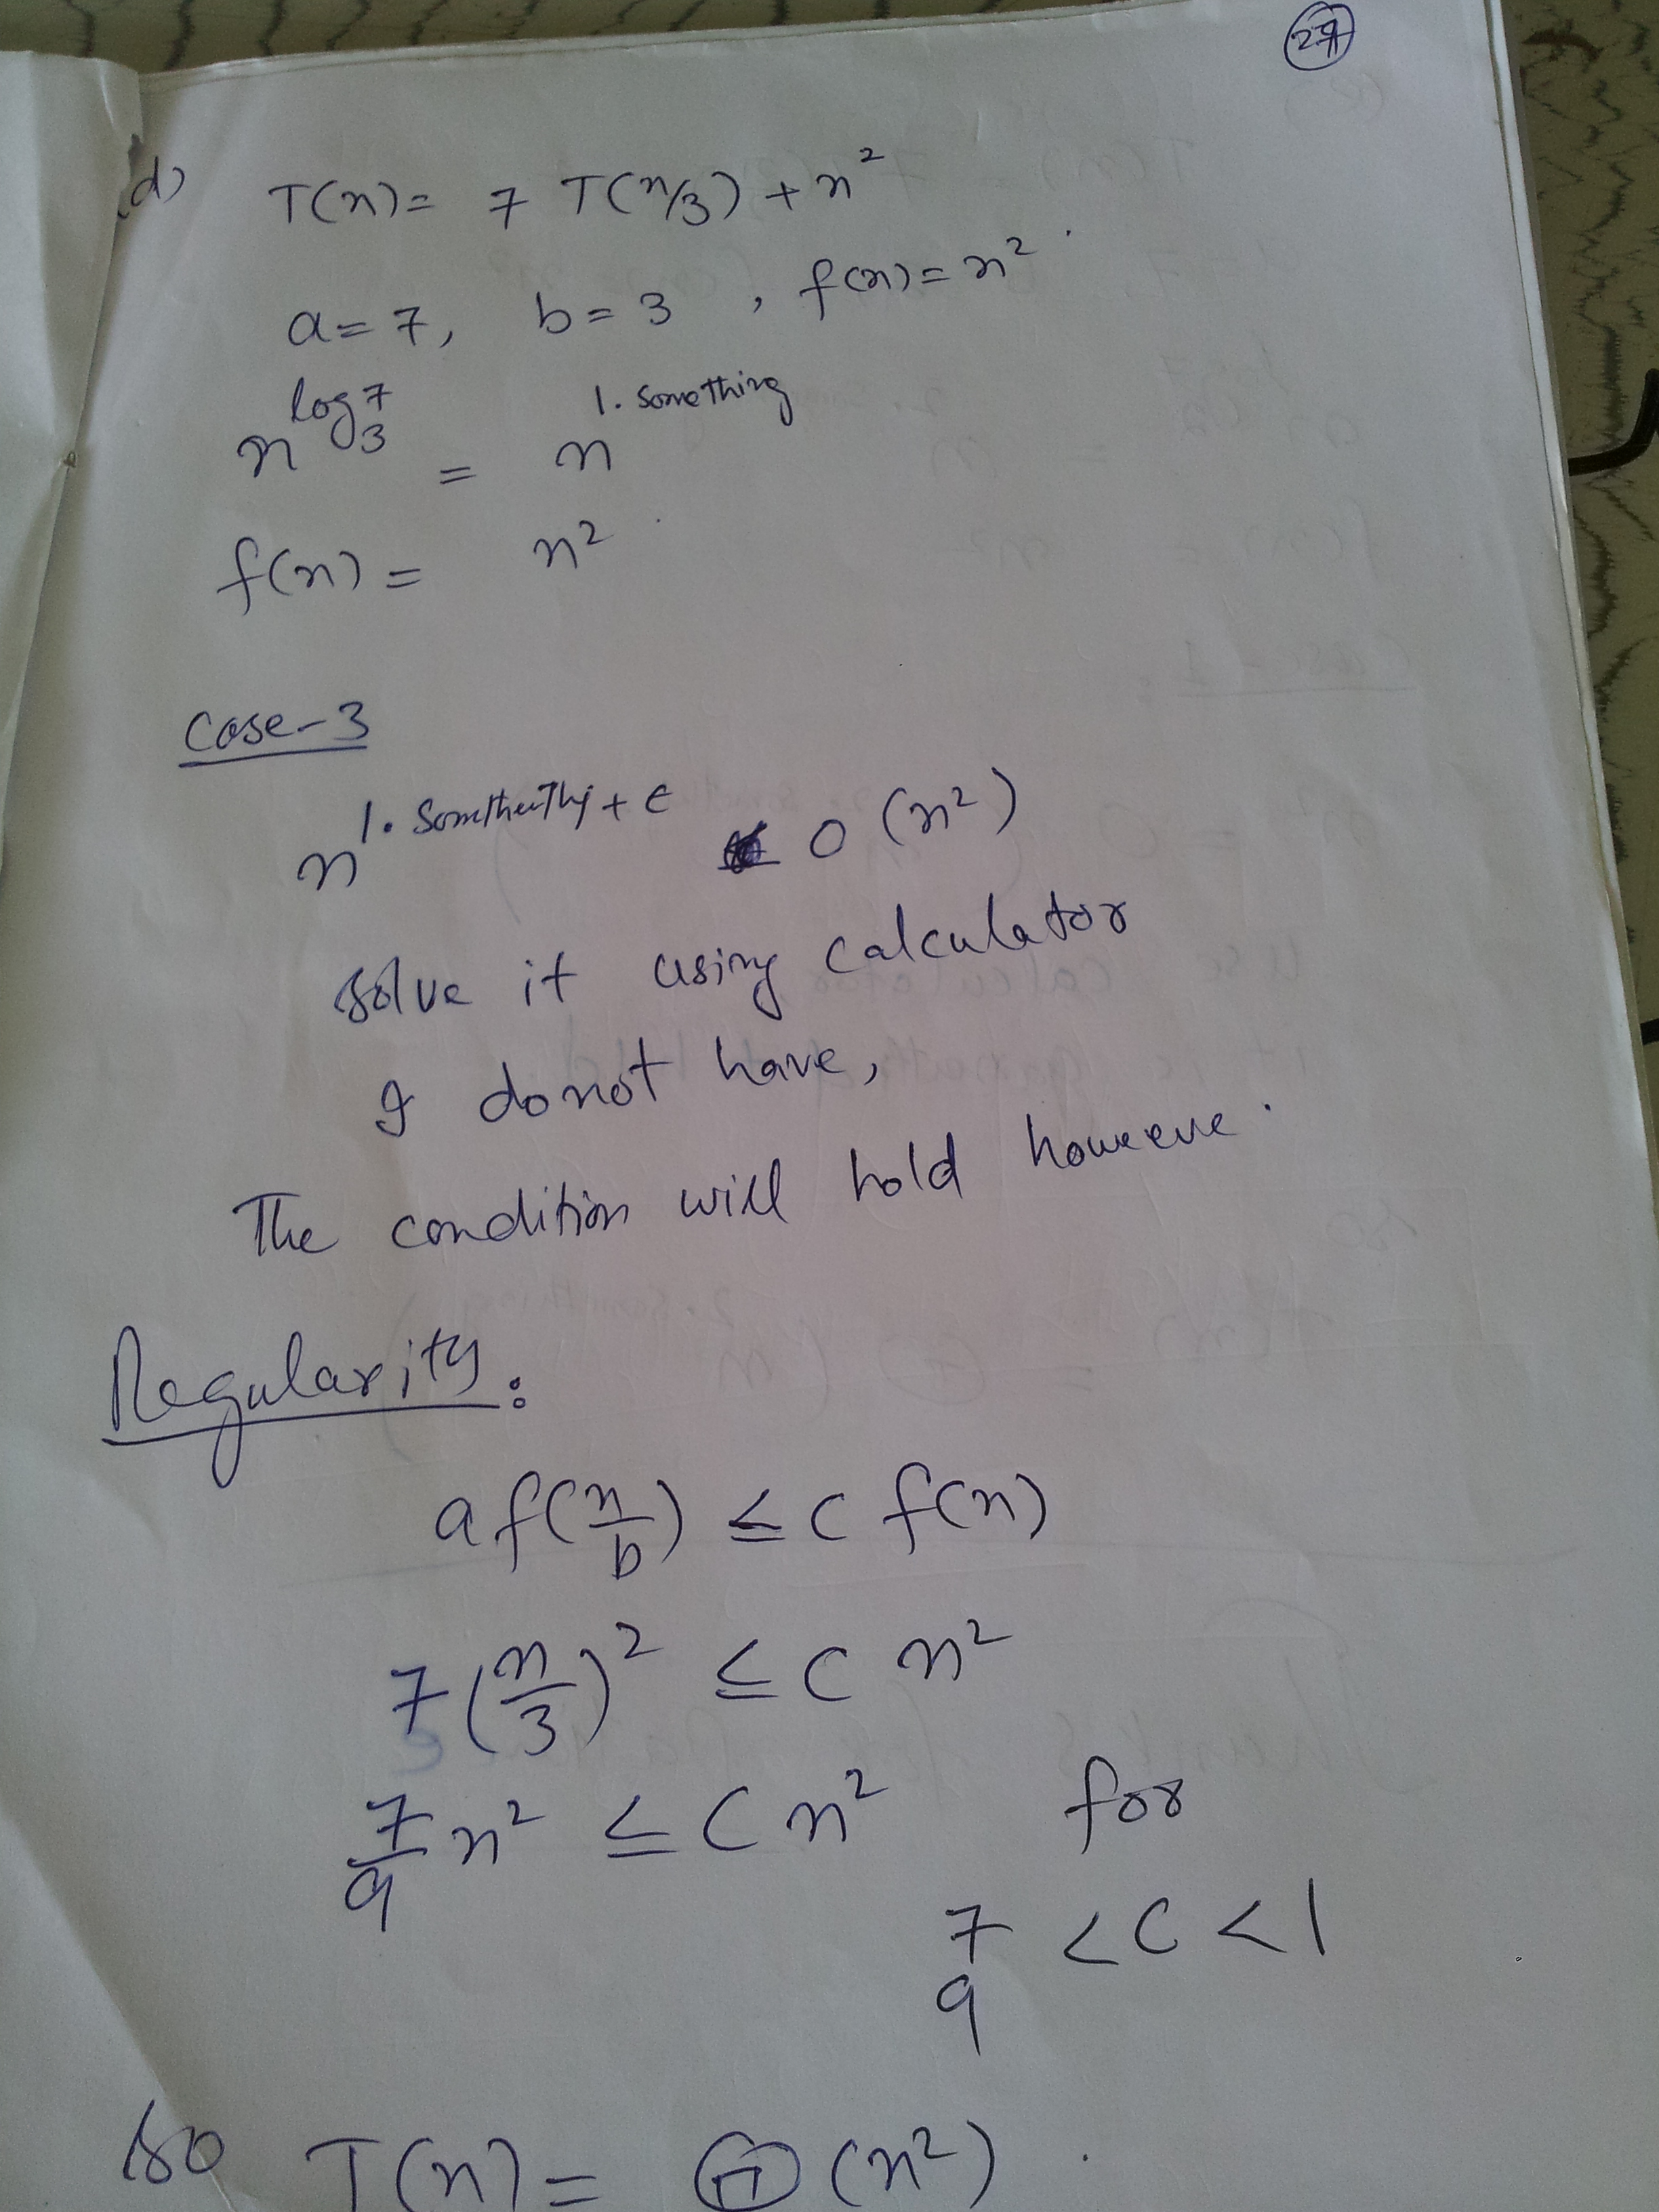 27
d) T(n) = 7 T(n/3) + n²
a = 7, b = 3, f(n) = n².
n^log₃7 = n^1.something
f(n) = n²
Case-3
n^1. + ε O(n²)
solve it using calculator
I do not have,
The condition will hold howeeve.
Regularity:
a f(n/b) ≤ c f(n)
7(n/3)² ≤ C n²
7/9 n² ≤ C n² for
7/9 < C < 1
so T(n) = Θ(n²).